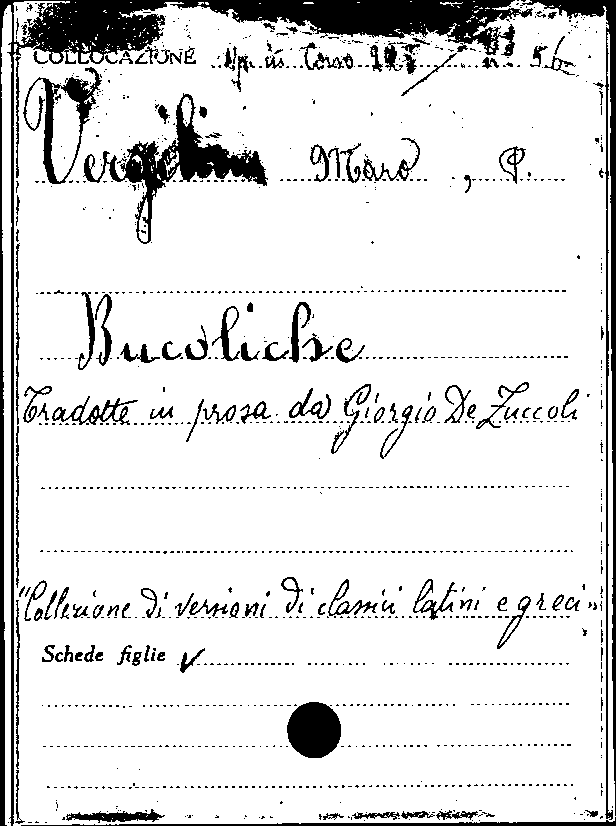 COLLOCAZIONE Op. in Corso 197 / n° 56
Vergilius Maro, P.
Bucoliche
Tradotte in prosa da Giorgio De Zuccoli
"Collezione di versioni di classici latini e greci"
Schede figlie ✓